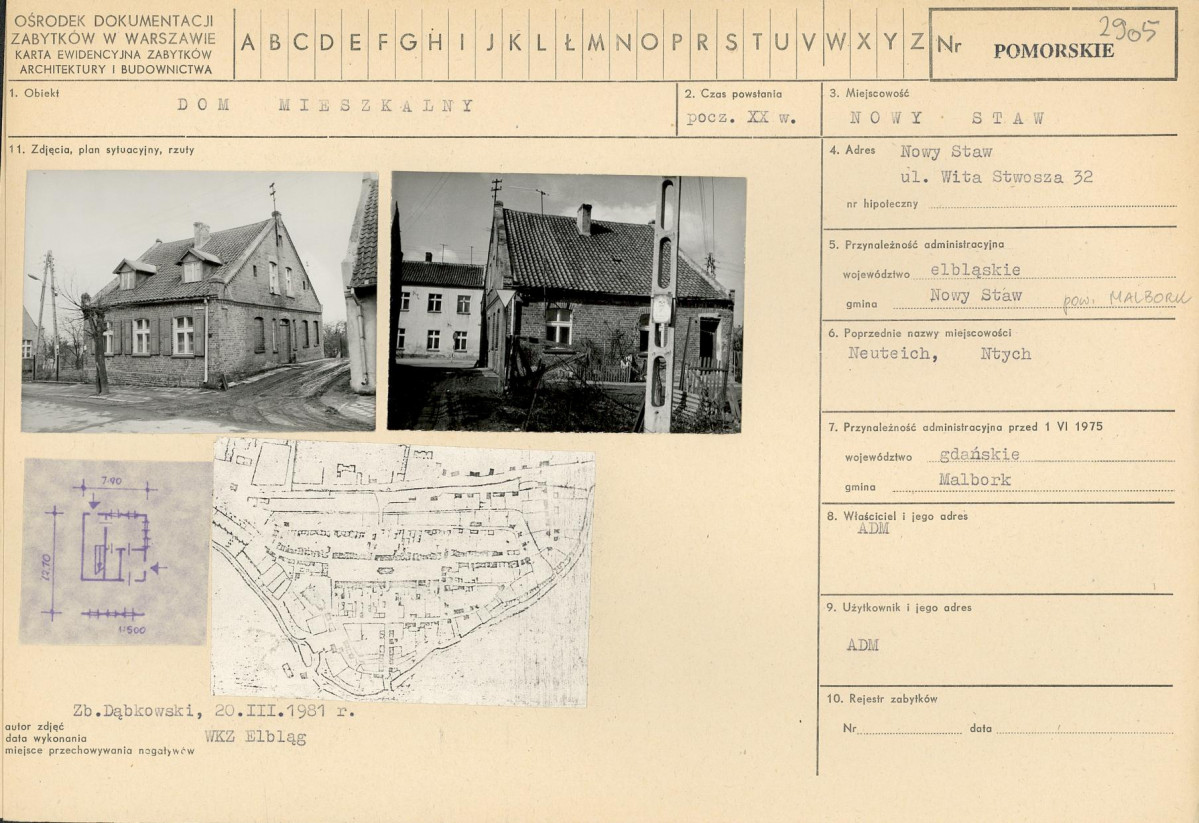 OŚRODEK DOKUMENTACJI
ZABYTKÓW W WARSZAWIE
KARTA EWIDENCYJNA ZABYTKÓW
ARCHITEKTURY I BUDOWNICTWA
A B C D E F G H I J K L Ł M N O P R S T U V W X Y Z
Nr POMORSKIE 2905
1. Obiekt
DOM MIESZKALNY
2. Czas powstania
pocz. XX w.
3. Miejscowość
NOWY STAW
11. Zdjęcia, plan sytuacyjny, rzuty
4. Adres Nowy Staw
ul. Wita Stwosza 32
nr hipoteczny
5. Przynależność administracyjna
województwo elbląskie
gmina Nowy Staw pow. MALBORK
6. Poprzednie nazwy miejscowości
Neuteich, Ntych
7. Przynależność administracyjna przed 1 VI 1975
województwo gdańskie
gmina Malbork
8. Właściciel i jego adres
ADM
9. Użytkownik i jego adres
ADM
10. Rejestr zabytków
Nr data
7.90
12.70
1:500
Zb.Dąbkowski, 20.III.1981 r.
autor zdjęć
data wykonania
WKZ Elbląg
miejsce przechowywania negatywów